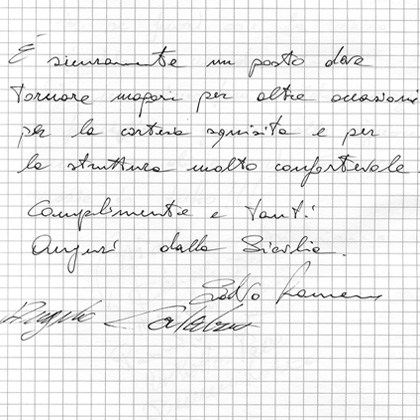 È sicuramente un posto dove
tornare magari per altre occasioni
per la cortesia squisita e per
la struttura molto confortevole.
Complimente e tanti
Auguri dalla Sicilia.
Salvo
Angelo